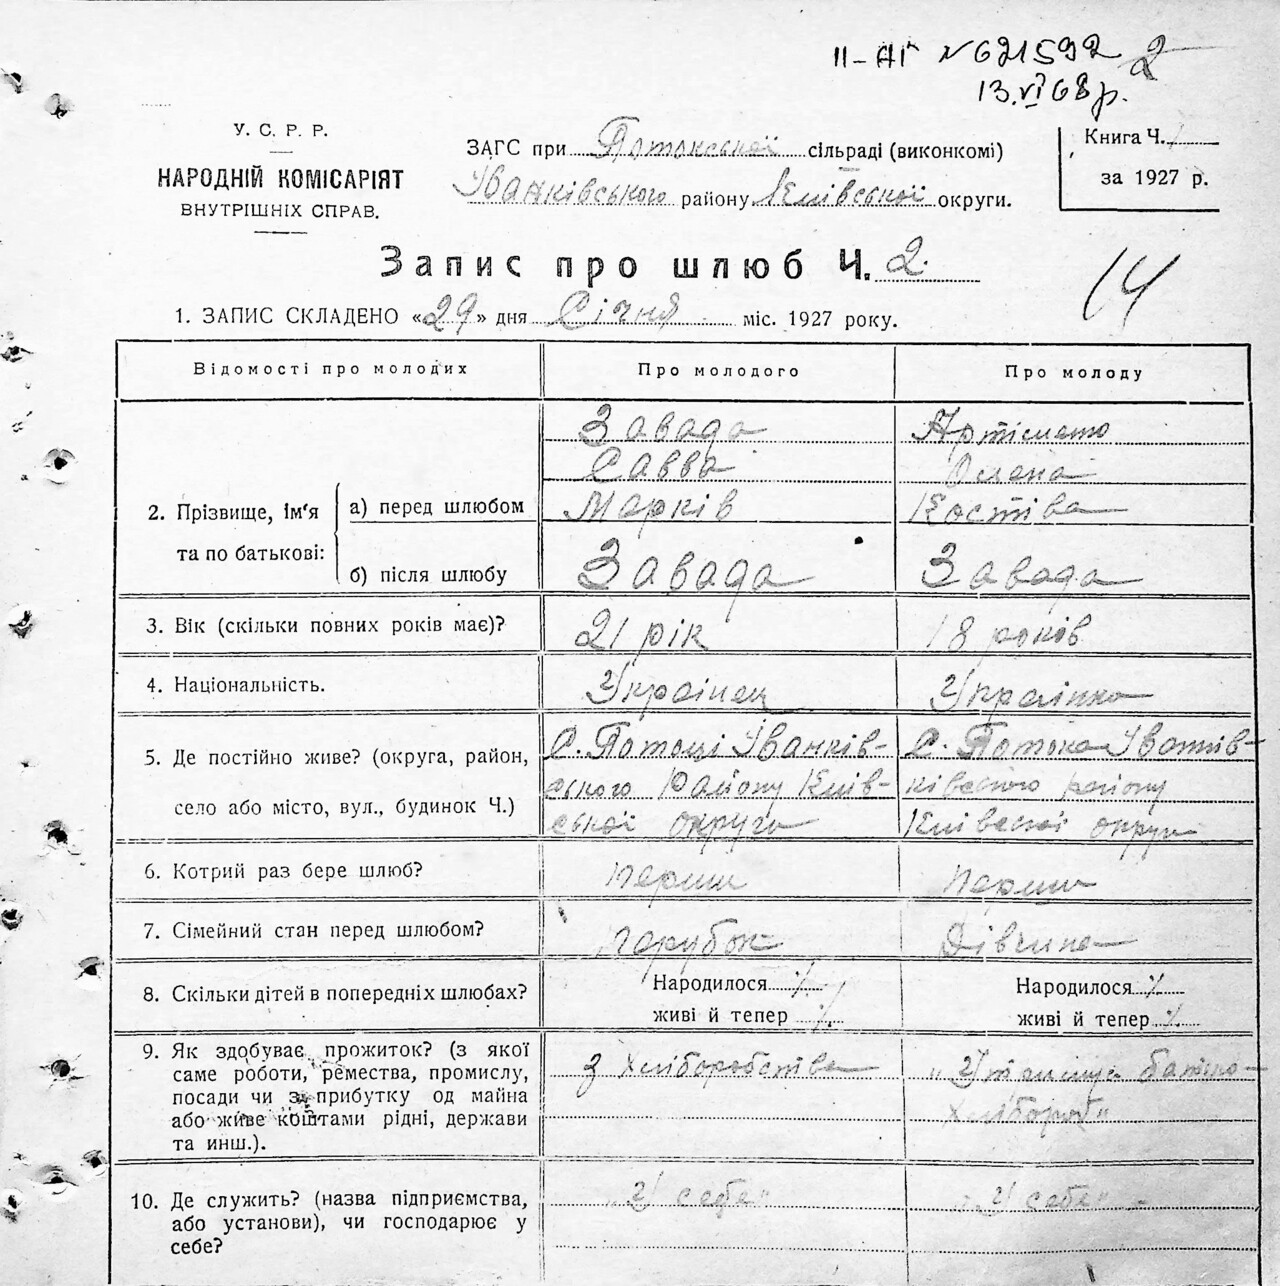 II-АГ №621592 2
13.VI 68 р.
У. С. Р. Р.
НАРОДНІЙ КОМІСАРІЯТ
ВНУТРІШНІХ СПРАВ.
ЗАГС при Потокської сільраді (виконкомі)
Іванківського району Київської округи.
Книга Ч. 1
за 1927 р.
Запис про шлюб Ч. 2.
14
1. ЗАПИС СКЛАДЕНО «29» дня Січня міс. 1927 року.
Відомості про молодих Про молодого Про молоду
2. Прізвище, ім'я та по батькові:
а) перед шлюбом
Завада
Савва
Марків
Олена
Костівна
б) після шлюбу Завада Завада
3. Вік (скільки повних років має)? 21 рік 18 років
4. Національність. Українец Українка
5. Де постійно живе? (округа, район,
село або місто, вул., будинок Ч.)
С. Потоці Іванків-
ського Району Київ-
ської округи
С. Потока
району
округи
6. Котрий раз бере шлюб? перший перший
7. Сімейний стан перед шлюбом? парубок Дівчина
8. Скільки дітей в попередніх шлюбах? Народилося ٪ Народилося ٪
живі й тепер ٪ живі й тепер ٪
9. Як здобуває прожиток? (з якої
саме роботи, ремества, промислу,
посади чи з прибутку од майна
або живе коштами рідні, держави
та инш.).
з Хліборобства
"Утримує батько-
Хлібороб"
10. Де служить? (назва підприємства,
або установи), чи господарює у
себе?
"У себе" "У себе"